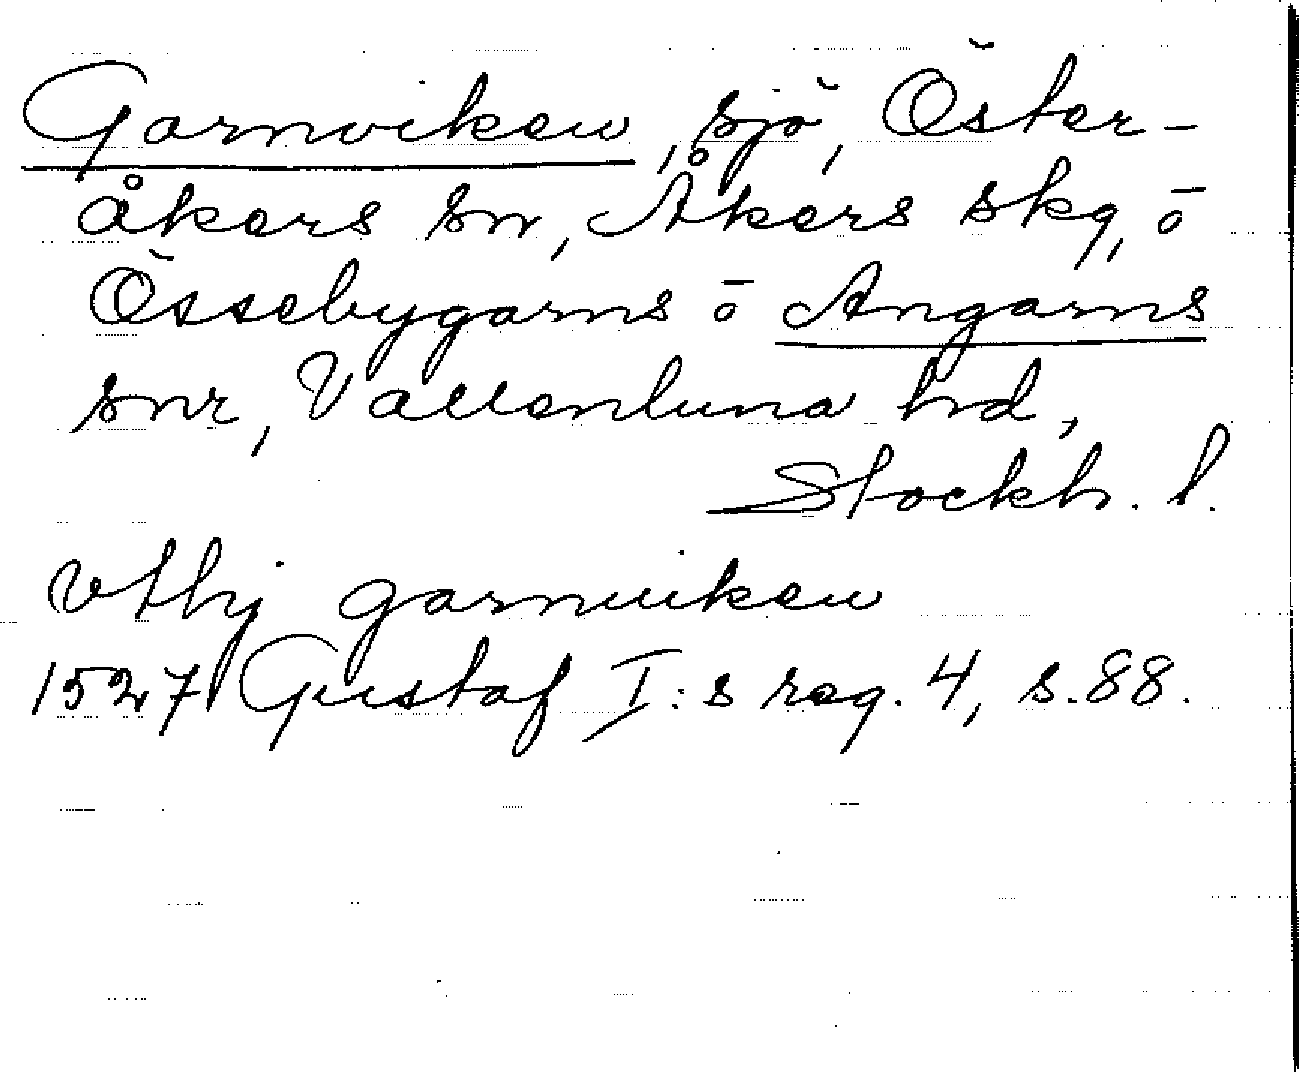 Garnviken, sjö, Öster-
åkers sn, Åkers skg, o
Össebygarns o Angarns
snr, Vallentuna hd,
Stockh. l.
vthj garnuiken
1527 Gustaf I:s reg. 4, s. 88.